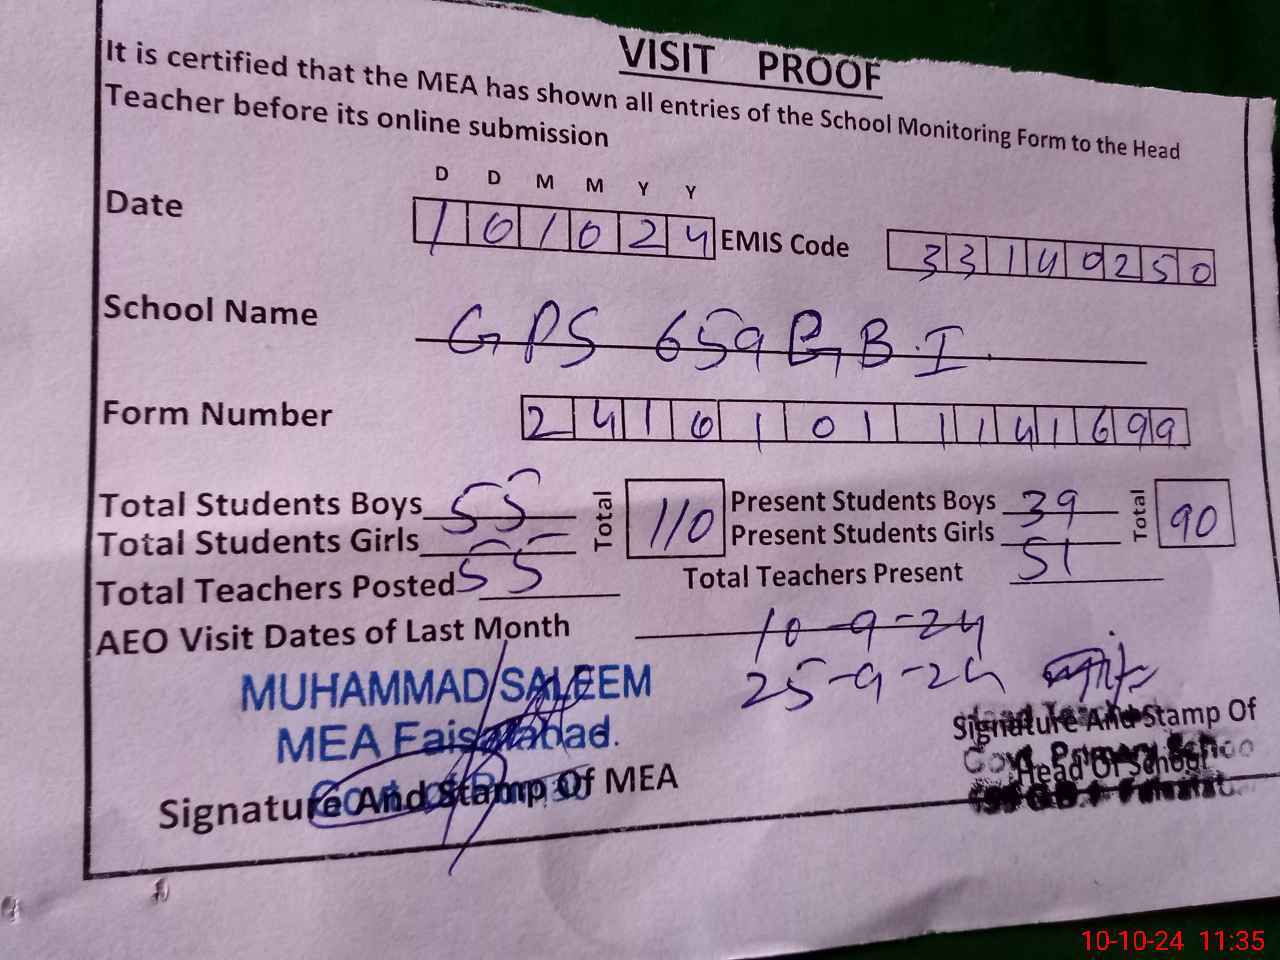 VISIT PROOF
It is certified that the MEA has shown all entries of the School Monitoring Form to the Head
Teacher before its online submission
D D M M Y Y
Date 1 0 1 0 2 4 EMIS Code 3 3 1 4 0 2 5 0
School Name GPS 659 GB.I
Form Number 2 4 1 0 1 0 1 1 1 4 1 6 9 9
Total Students Boys 55 Total 110 Present Students Boys 39 Total 90
Total Students Girls 55 Present Students Girls 51
Total Teachers Posted Total Teachers Present
AEO Visit Dates of Last Month 10-9-24
25-9-24
MUHAMMAD SALEEM
MEA Faisalabad.
Signature And Stamp Of MEA
Signature And Stamp Of
Govt. Primary School
Head Of School
10-10-24 11:35